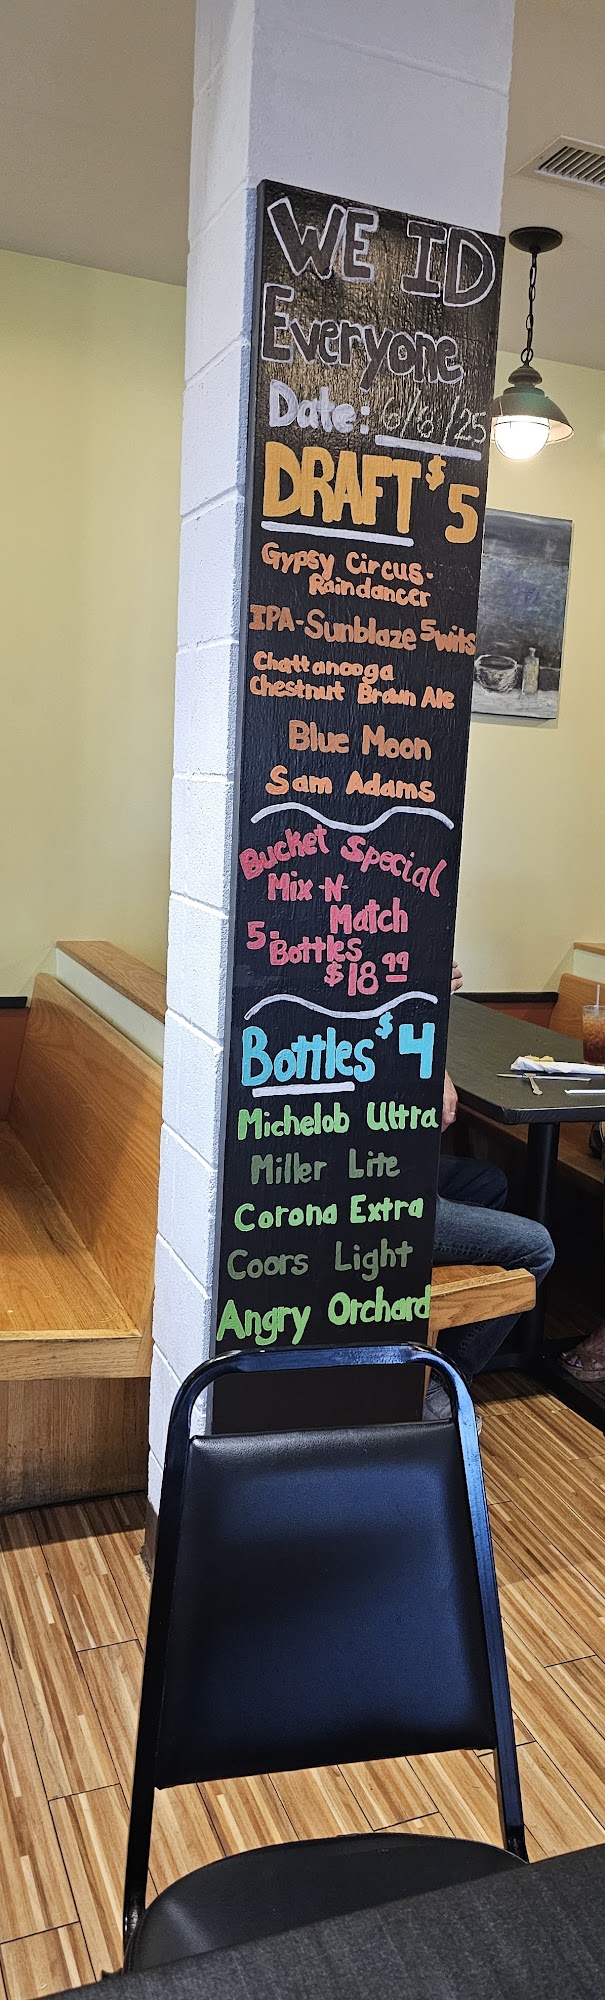 WE ID
Everyone
Date: 6/6/25
DRAFT $5
Gypsy Circus-
Raindancer
IPA-Sunblaze 5wits
Chattanooga
Chestnut Brown Ale
Blue Moon
Sam Adams
Bucket Special
Mix-N-
Match
5-
Bottles
$18.99
Bottles $4
Michelob Ultra
Miller Lite
Corona Extra
Coors Light
Angry Orchard